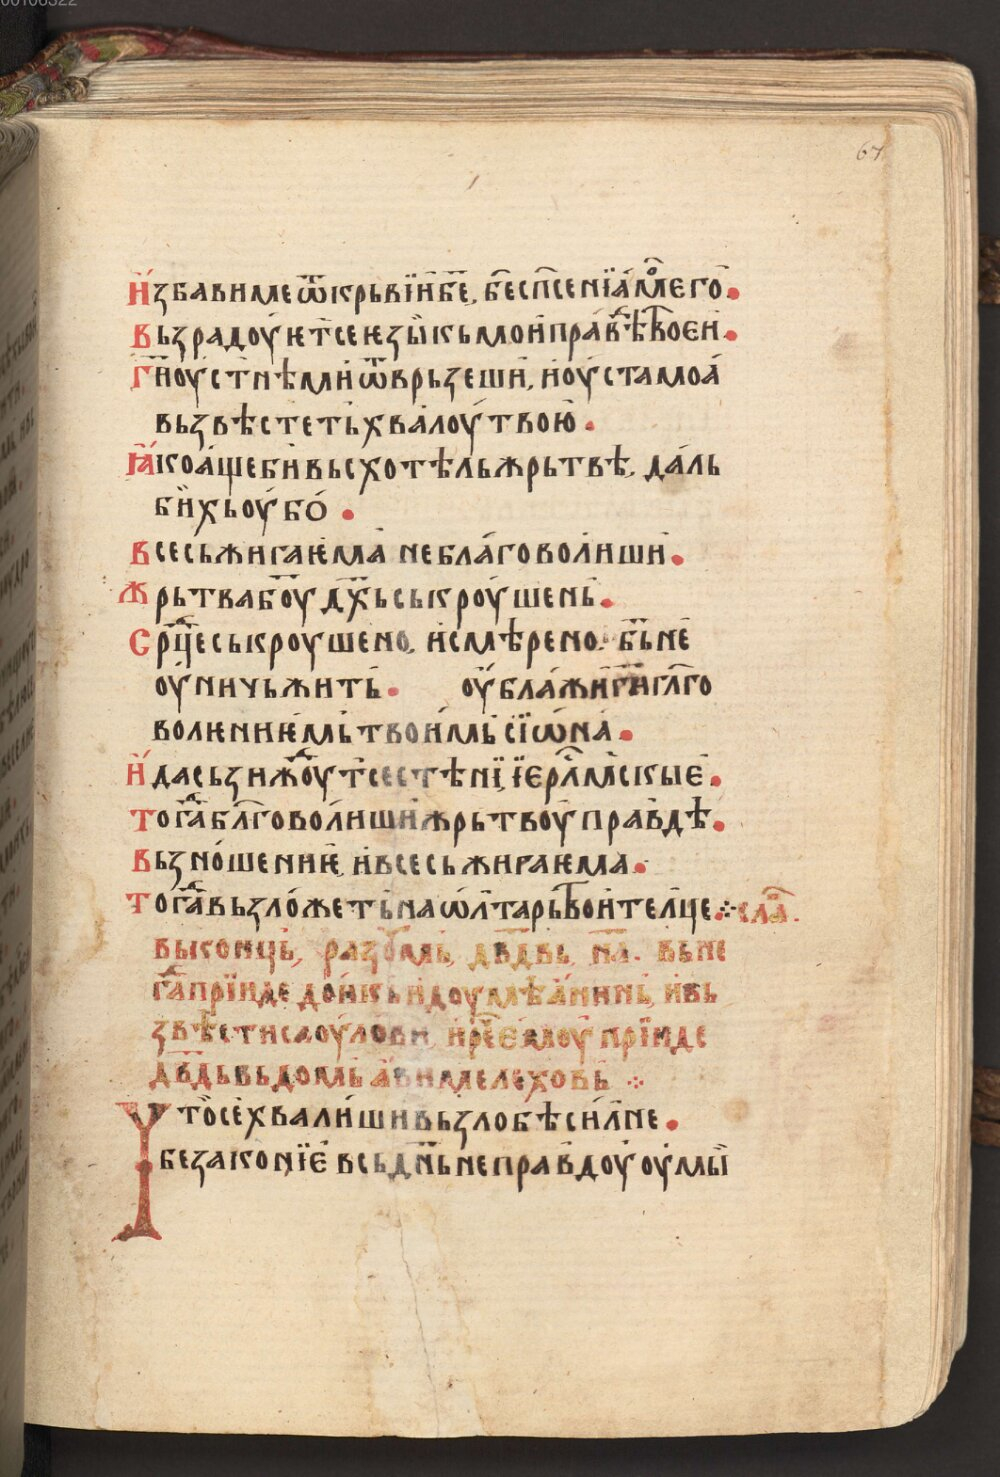 00106322
67
И҆́збавимеѿкрьвїйб҃е, б҃есп҃сенїа́моего̀.
Вьзрадоу́ѥтсеѥзы́кьмоипра́вдѣтвоѥи.
Г҃иоу́стнѣмиѿврьзеши, иоу́стамоа́
вьзвѣстеть́хва́лоу́твою̀.
Ꙗ҆́коа́щебиивьсхотѣльжрьтвѣ, да́ль
бѝхьоу́бо́.
Всесьжигаѥма неблаговолиши.
Жрьтваб҃оуд҃хьськроу́шень.
Ср҃цеськроушено, исмѣрено. б҃ьне
оу́ничьжить. оу́блажиг҃иг҃лго
волѥниѥмь́твои́мь́сїѡна.
И҆́дасьзиждоу́тсестѣнїѥ́ї́ер҃лмскыѥ.
Тогда́бл҃говоли́шижрьтвоупра́вдѣ.
Вьзно́шениѥ, ивсесьжигаѥма.
Тогда́вьзло́жеть́наѡ҆лтарьтвоите́лце. сла́
вьконць, разоумь, дв҃дь, н҃а. вьнѥ
гдапрїидедо́икьидоумѣа́нинь, ивь
звѣстисаоу́лови, иречеѥмоу́прїиде
дв҃дьвьдомь а́вимелеховь
Чтосехвали́шивьзлобѣси́лне.
безаконїѥ́всьд҃ньнепра́вдоуоу́мы̀